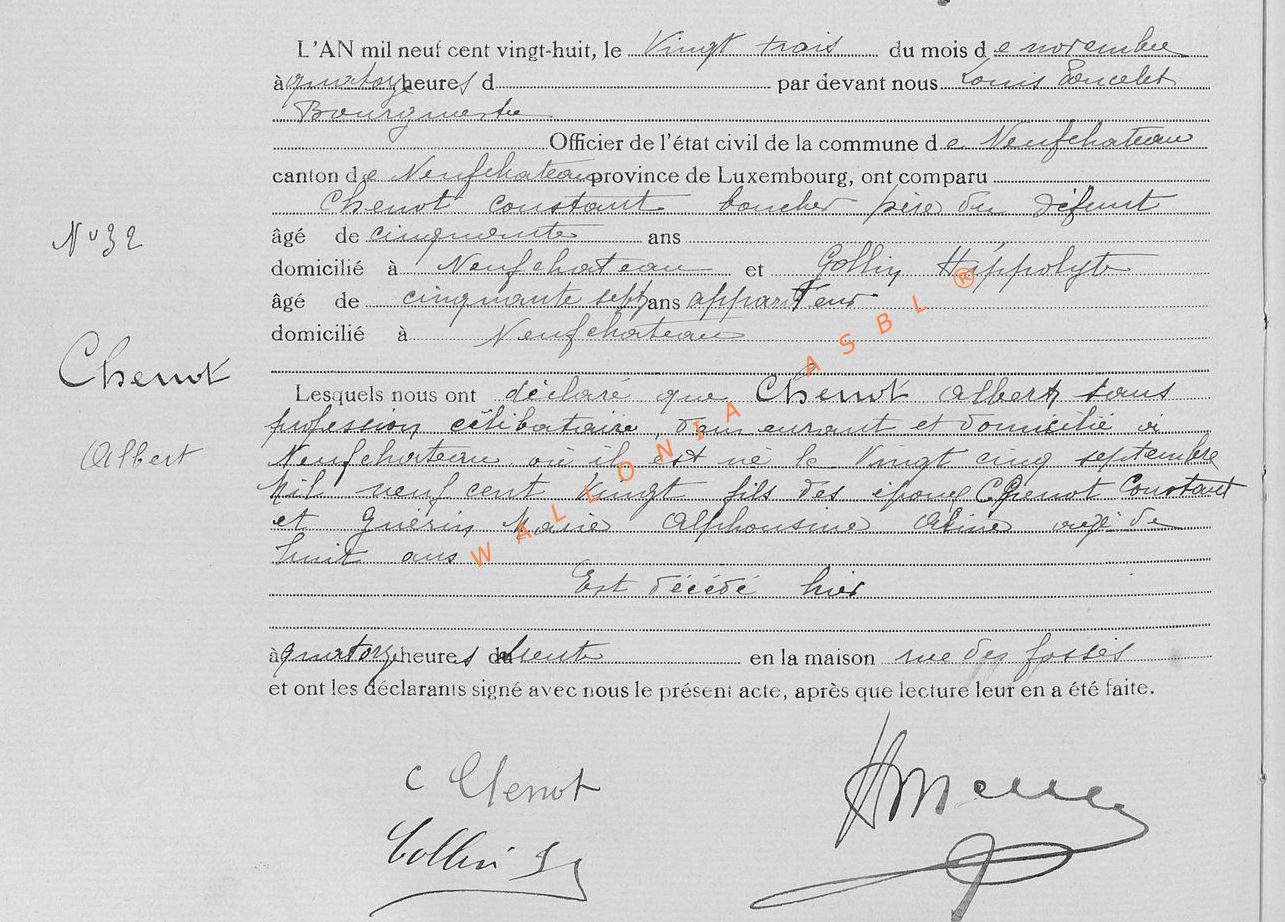 L'AN mil neuf cent vingt-huit, le Vingt trois du mois de novembre
à quatorze heures d par devant nous Louis Poncelet
Bourgmestre
Officier de l'état civil de la commune de Neufchateau
canton de Neufchateau province de Luxembourg, ont comparu
Chenot constant boucher père du défunt
âgé de cinquante ans
N° 32
domicilié à Neufchateau et Collin Hippolyte
âgé de cinquante sept ans appariteur
domicilié à Neufchateau
Chenot
Albert
Lesquels nous ont déclaré que Chenot Albert sans
profession célibataire, demeurant et domicilié à
Neufchateau où il est né le Vingt cinq septembre
Mil neuf cent Vingt fils des époux Chenot Constant
et Guérin Marie Alphonsine Aline agé de
huit ans
Est décédé hier
à quatorze heures trente en la maison rue des fossés
et ont les déclarants signé avec nous le présent acte, après que lecture leur en a été faite.
C Chenot
Collin Hy
WALLONIA ASBL ®